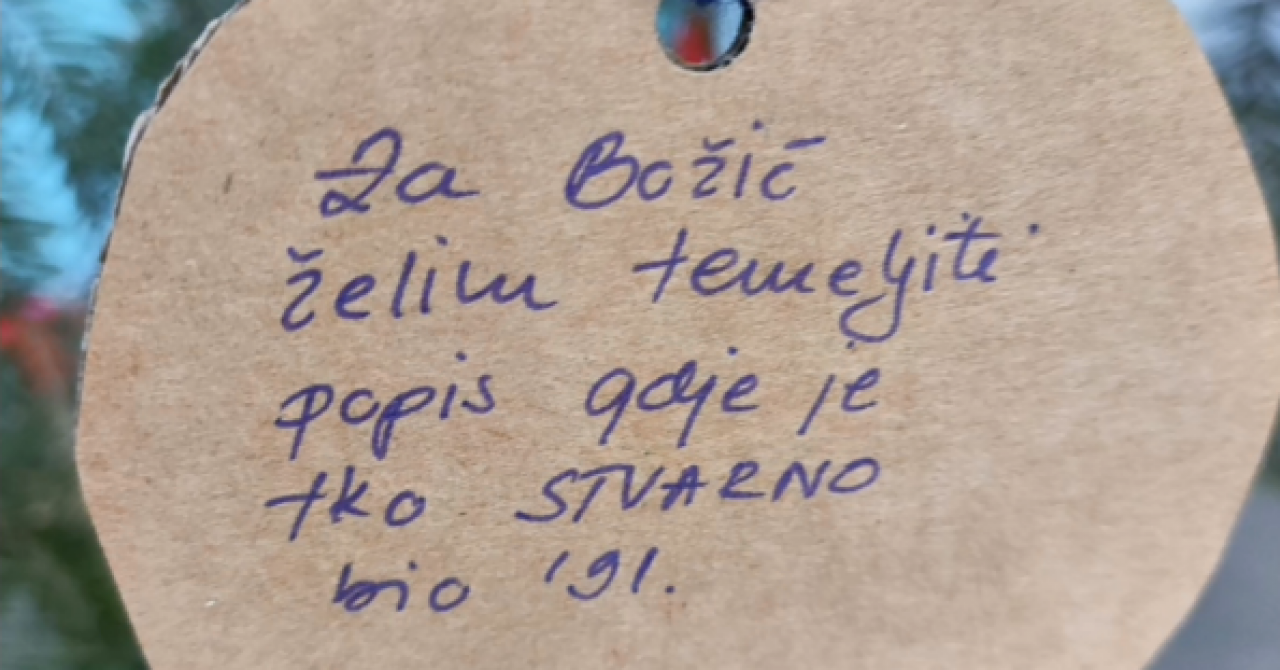 Za Božić
želim temeljiti
popis gdje je
tko STVARNO
bio '91.